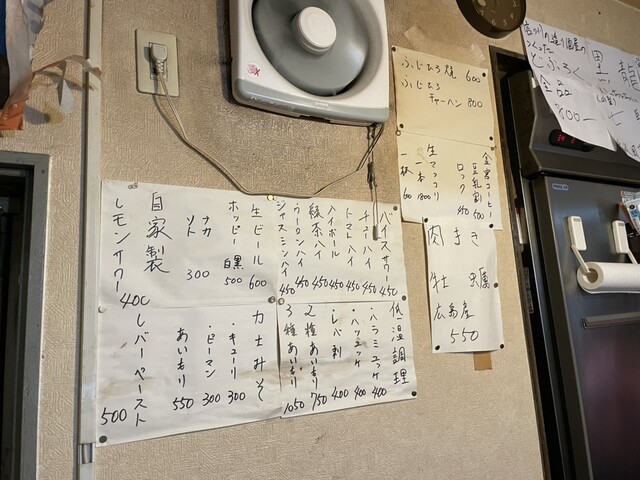 ふじひろ焼 600
ふじひろ
チャーハン 800
金宮コーヒー 500
豆乳割
ロック 450
生マッコリ
一本 1800
一杯 600
肉すき
牡蠣
広島産
550
バイスサワー 450
チューハイ 450
トマトハイ 450
ハイボール 450
緑茶ハイ 450
ウーロンハイ 450
ジャスミンハイ 450
生ビール 600
ホッピー 白黒 500
ナカ 300
ソト
自家製
レモンサワー 400
低温調理
・ハラミユッケ 400
・ハツユッケ 400
・レバ刺 400
2種あいもり 750
3種あいもり 1050
力士みそ
・キューリ 300
・ピーマン 300
あいもり 550
レバーペースト 500
どぶろく
黒龍
全品
800-